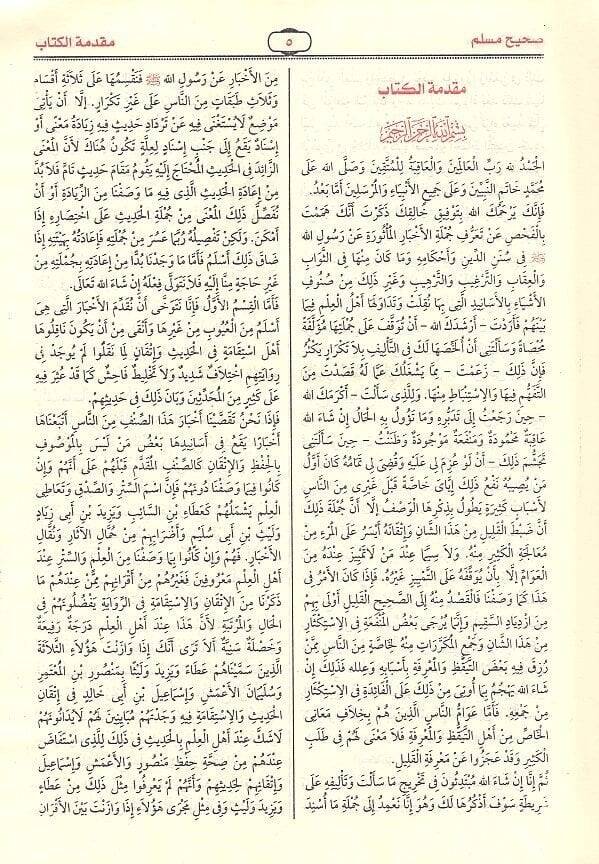 صحيح مسلم
٥
مقدمة الكتاب
مقدمة الكتاب
بِسْمِ اللهِ الرَّحْمَنِ الرَّحِيمِ
الْحَمْدُ لله رَبِّ الْعَالَمِينَ وَالْعَاقِبَةُ لِلْمُتَّقِينَ وَصَلَّى الله عَلَى
مُحَمَّدٍ خَاتَمِ النَّبِيِّينَ وَعَلَى جَمِيعِ الأَنْبِيَاءِ وَالْمُرْسَلِينَ أَمَّا بَعْدُ.
فَإِنَّكَ يَرْحَمُكَ الله بِتَوْفِيقِ خَالِقِكَ ذَكَرْتَ أَنَّكَ هَمَمْتَ
بِالْفَحْصِ عَنْ تَعَرُّفِ جُمْلَةِ الأَخْبَارِ الْمَأْثُورَةِ عَنْ رَسُولِ الله
ﷺ فِى سُنَنِ الدِّينِ وَأَحْكَامِهِ وَمَا كَانَ مِنْهَا فِى الثَّوَابِ
وَالْعِقَابِ وَالتَّرْغِيبِ وَالتَّرْهِيبِ وَغَيْرِ ذَلِكَ مِنْ صُنُوفِ
الأَشْيَاءِ بِالأَسَانِيدِ الَّتِى بِهَا نُقِلَتْ وَتَدَاوَلَهَا أَهْلُ الْعِلْمِ فِيمَا
بَيْنَهُمْ فَأَرَدْتَ - أَرْشَدَكَ الله - أَنْ تُوَقَّفَ عَلَى جُمْلَتِهَا مُؤَلَّفَةً
مُحْصَاةً وَسَأَلْتَنِى أَنْ أُلَخِّصَهَا لَكَ فِى التَّأْلِيفِ بِلاَ تَكْرَارٍ يَكْثُرُ
فَإِنَّ ذَلِكَ - زَعَمْتَ - مِمَّا يَشْغَلُكَ عَمَّا لَهُ قَصَدْتَ مِنَ
التَّفَهُّمِ فِيهَا وَالاِسْتِنْبَاطِ مِنْهَا. وَلِلَّذِى سَأَلْتَ - أَكْرَمَكَ الله
- حِينَ رَجَعْتُ إِلَى تَدَبُّرِهِ وَمَا تَؤُولُ بِهِ الْحَالُ إِنْ شَاءَ الله
عَاقِبَةٌ مَحْمُودَةٌ وَمَنْفَعَةٌ مَوْجُودَةٌ وَظَنَنْتُ - حِينَ سَأَلْتَنِى
تَجَشُّمَ ذَلِكَ - أَنْ لَوْ عُزِمَ لِى عَلَيْهِ وَقُضِىَ لِى تَمَامُهُ كَانَ أَوَّلُ
مَنْ يُصِيبُهُ نَفْعُ ذَلِكَ إِيَّاىَ خَاصَّةً قَبْلَ غَيْرِى مِنَ النَّاسِ
لأَسْبَابٍ كَثِيرَةٍ يَطُولُ بِذِكْرِهَا الْوَصْفُ إِلاَّ أَنَّ جُمْلَةَ ذَلِكَ
أَنَّ ضَبْطَ الْقَلِيلِ مِنْ هَذَا الشَّانِ وَإِتْقَانَهُ أَيْسَرُ عَلَى الْمَرْءِ مِنْ
مُعَالَجَةِ الْكَثِيرِ مِنْهُ. وَلاَ سِيَّمَا عِنْدَ مَنْ لاَ تَمْيِيزَ عِنْدَهُ مِنَ
الْعَوَامِّ إِلاَّ بِأَنْ يُوَقِّفَهُ عَلَى التَّمْيِيزِ غَيْرُهُ. فَإِذَا كَانَ الأَمْرُ فِى
هَذَا كَمَا وَصَفْنَا فَالْقَصْدُ مِنْهُ إِلَى الصَّحِيحِ الْقَلِيلِ أَوْلَى بِهِمْ
مِنَ ازْدِيَادِ السَّقِيمِ وَإِنَّمَا يُرْجَى بَعْضُ الْمَنْفَعَةِ فِى الاِسْتِكْثَارِ
مِنْ هَذَا الشَّانِ وَجَمْعِ الْمُكَرَّرَاتِ مِنْهُ لِخَاصَّةٍ مِنَ النَّاسِ مِمَّنْ
رُزِقَ فِيهِ بَعْضَ التَّيَقُّظِ وَالْمَعْرِفَةِ بِأَسْبَابِهِ وَعِلَلِهِ فَذَلِكَ إِنْ
شَاءَ الله يَهْجُمُ بِمَا أُوتِىَ مِنْ ذَلِكَ عَلَى الْفَائِدَةِ فِى الاِسْتِكْثَارِ
مِنْ جَمْعِهِ. فَأَمَّا عَوَامُّ النَّاسِ الَّذِينَ هُمْ بِخِلاَفِ مَعَانِى
الْخَاصِّ مِنْ أَهْلِ التَّيَقُّظِ وَالْمَعْرِفَةِ فَلاَ مَعْنَى لَهُمْ فِى طَلَبِ
الْكَثِيرِ وَقَدْ عَجَزُوا عَنْ مَعْرِفَةِ الْقَلِيلِ.
ثُمَّ إِنَّا إِنْ شَاءَ الله مُبْتَدِئُونَ فِى تَخْرِيجِ مَا سَأَلْتَ وَتَأْلِيفِهِ عَلَى
شَرِيطَةٍ سَوْفَ أَذْكُرُهَا لَكَ وَهُوَ إِنَّا نَعْمِدُ إِلَى جُمْلَةِ مَا أُسْنِدَ
مِنَ الأَخْبَارِ عَنْ رَسُولِ الله ﷺ فَنَقْسِمُهَا عَلَى ثَلاَثَةِ أَقْسَامٍ
وَثَلاَثِ طَبَقَاتٍ مِنَ النَّاسِ عَلَى غَيْرِ تَكْرَارٍ. إِلاَّ أَنْ يَأْتِىَ
مَوْضِعٌ لاَ يُسْتَغْنَى فِيهِ عَنْ تَرْدَادِ حَدِيثٍ فِيهِ زِيَادَةُ مَعْنًى أَوْ
إِسْنَادٌ يَقَعُ إِلَى جَنْبِ إِسْنَادٍ لِعِلَّةٍ تَكُونُ هُنَاكَ لأَنَّ الْمَعْنَى
الزَّائِدَ فِى الْحَدِيثِ الْمُحْتَاجَ إِلَيْهِ يَقُومُ مَقَامَ حَدِيثٍ تَامٍّ فَلاَ بُدَّ
مِنْ إِعَادَةِ الْحَدِيثِ الَّذِى فِيهِ مَا وَصَفْنَا مِنَ الزِّيَادَةِ أَوْ أَنْ
نُفَصِّلَ ذَلِكَ الْمَعْنَى مِنْ جُمْلَةِ الْحَدِيثِ عَلَى اخْتِصَارِهِ إِذَا
أَمْكَنَ. وَلَكِنْ تَفْصِيلُهُ رُبَّمَا عَسُرَ مِنْ جُمْلَتِهِ فَإِعَادَتُهُ بِهَيْئَتِهِ إِذَا
ضَاقَ ذَلِكَ أَسْلَمُ فَأَمَّا مَا وَجَدْنَا بُدًّا مِنْ إِعَادَتِهِ بِجُمْلَتِهِ مِنْ
غَيْرِ حَاجَةٍ مِنَّا إِلَيْهِ فَلاَ نَتَوَلَّى فِعْلَهُ إِنْ شَاءَ الله تَعَالَى.
فَأَمَّا الْقِسْمُ الأَوَّلُ فَإِنَّا نَتَوَخَّى أَنْ نُقَدِّمَ الأَخْبَارَ الَّتِى هِىَ
أَسْلَمُ مِنَ الْعُيُوبِ مِنْ غَيْرِهَا وَأَنْقَى مِنْ أَنْ يَكُونَ نَاقِلُوهَا
أَهْلَ اسْتِقَامَةٍ فِى الْحَدِيثِ وَإِتْقَانٍ لِمَا نَقَلُوا لَمْ يُوجَدْ فِى
رِوَايَتِهِمُ اخْتِلاَفٌ شَدِيدٌ وَلاَ تَخْلِيطٌ فَاحِشٌ كَمَا قَدْ عُثِرَ فِيهِ
عَلَى كَثِيرٍ مِنَ الْمُحَدِّثِينَ وَبَانَ ذَلِكَ فِى حَدِيثِهِمْ.
فَإِذَا نَحْنُ تَقَصَّيْنَا أَخْبَارَ هَذَا الصِّنْفِ مِنَ النَّاسِ أَتْبَعْنَاهَا
أَخْبَارًا يَقَعُ فِى أَسَانِيدِهَا بَعْضُ مَنْ لَيْسَ بِالْمَوْصُوفِ
بِالْحِفْظِ وَالإِتْقَانِ كَالصِّنْفِ الْمُقَدَّمِ قَبْلَهُمْ عَلَى أَنَّهُمْ وَإِنْ
كَانُوا فِيمَا وَصَفْنَا دُونَهُمْ فَإِنَّ اسْمَ السَّتْرِ وَالصِّدْقِ وَتَعَاطِى
الْعِلْمِ يَشْمَلُهُمْ كَعَطَاءِ بْنِ السَّائِبِ وَيَزِيدَ بْنِ أَبِى زِيَادٍ
وَلَيْثِ بْنِ أَبِى سُلَيْمٍ وَأَضْرَابِهِمْ مِنْ حُمَّالِ الآثَارِ وَنُقَّالِ
الأَخْبَارِ. فَهُمْ وَإِنْ كَانُوا بِمَا وَصَفْنَا مِنَ الْعِلْمِ وَالسَّتْرِ عِنْدَ
أَهْلِ الْعِلْمِ مَعْرُوفِينَ فَغَيْرُهُمْ مِنْ أَقْرَانِهِمْ مِمَّنْ عِنْدَهُمْ مَا
ذَكَرْنَا مِنَ الإِتْقَانِ وَالاِسْتِقَامَةِ فِى الرِّوَايَةِ يَفْضُلُونَهُمْ فِى
الْحَالِ وَالْمَرْتَبَةِ لأَنَّ هَذَا عِنْدَ أَهْلِ الْعِلْمِ دَرَجَةٌ رَفِيعَةٌ
وَخَصْلَةٌ سَنِيَّةٌ أَلاَ تَرَى أَنَّكَ إِذَا وَازَنْتَ هَؤُلاَءِ الثَّلاَثَةَ
الَّذِينَ سَمَّيْنَاهُمْ عَطَاءً وَيَزِيدَ وَلَيْثًا بِمَنْصُورِ بْنِ الْمُعْتَمِرِ
وَسُلَيْمَانَ الأَعْمَشِ وَإِسْمَاعِيلَ بْنِ أَبِى خَالِدٍ فِى إِتْقَانِ
الْحَدِيثِ وَالاِسْتِقَامَةِ فِيهِ وَجَدْتَهُمْ مُبَايِنِينَ لَهُمْ لاَ يُدَانُونَهُمْ
لاَ شَكَّ عِنْدَ أَهْلِ الْعِلْمِ بِالْحَدِيثِ فِى ذَلِكَ لِلَّذِى اسْتَفَاضَ
عِنْدَهُمْ مِنْ صِحَّةِ حِفْظِ مَنْصُورٍ وَالأَعْمَشِ وَإِسْمَاعِيلَ
وَإِتْقَانِهِمْ لِحَدِيثِهِمْ وَأَنَّهُمْ لَمْ يَعْرِفُوا مِثْلَ ذَلِكَ مِنْ عَطَاءٍ
وَيَزِيدَ وَلَيْثٍ وَفِى مِثْلِ مَجْرَى هَؤُلاَءِ إِذَا وَازَنْتَ بَيْنَ الأَقْرَانِ